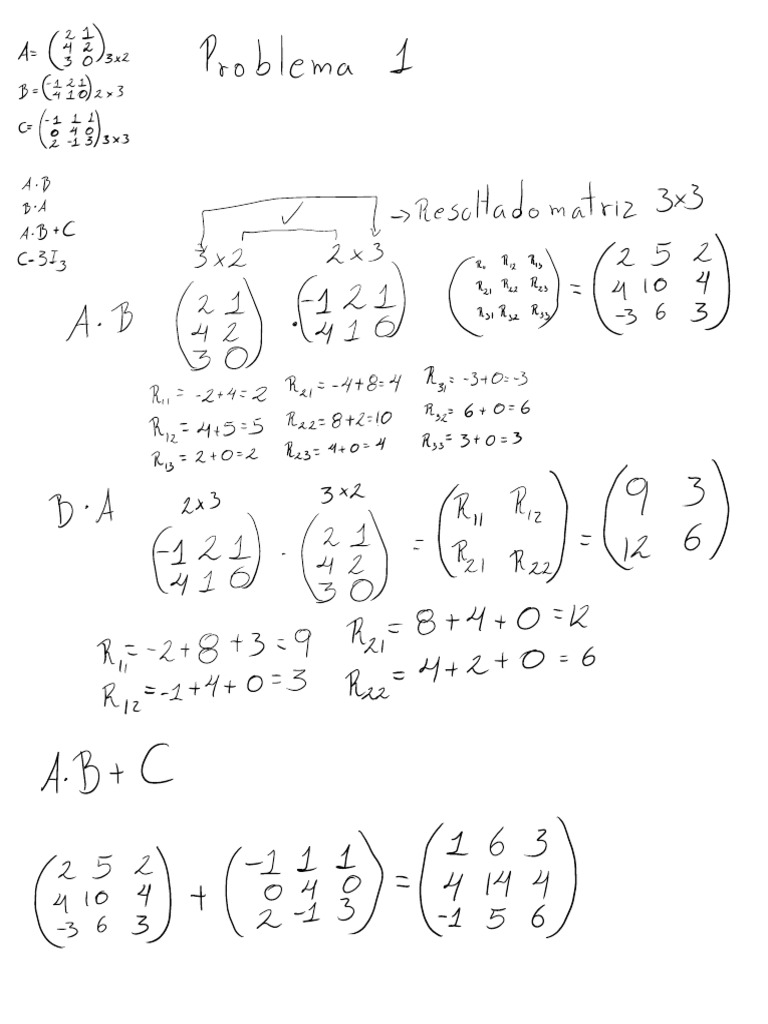 Problema 1
A= (2 1
4 2
3 0) 3x2
B= (-1 2 1
4 1 0) 2x3
C= (-1 1 1
0 4 0
2 -1 3) 3x3
A·B
B·A
A·B+C
C-3I₃
✓ →Resoltado matriz 3x3
3x2 2x3
A·B (2 1
4 2
3 0) · (-1 2 1
4 1 0) (R₁₁ R₁₂ R₁₃
R₂₁ R₂₂ R₂₃
R₃₁ R₃₂ R₃₃) = (2 5 2
4 10 4
-3 6 3)
R₁₁= -2+4=2 R₂₁=-4+8=4 R₃₁=-3+0=-3
R₁₂=4+5=5 R₂₂=8+2=10 R₃₂=6+0=6
R₁₃=2+0=2 R₂₃=4+0=4 R₃₃=3+0=3
B·A 2x3 3x2
(-1 2 1
4 1 0) · (2 1
4 2
3 0) = (R₁₁ R₁₂
R₂₁ R₂₂) = (9 3
12 6)
R₁₁=-2+8+3=9 R₂₁=8+4+0=12
R₁₂=-1+4+0=3 R₂₂=4+2+0=6
A·B+C
(2 5 2
4 10 4
-3 6 3) + (-1 1 1
0 4 0
2 -1 3) = (1 6 3
4 14 4
-1 5 6)